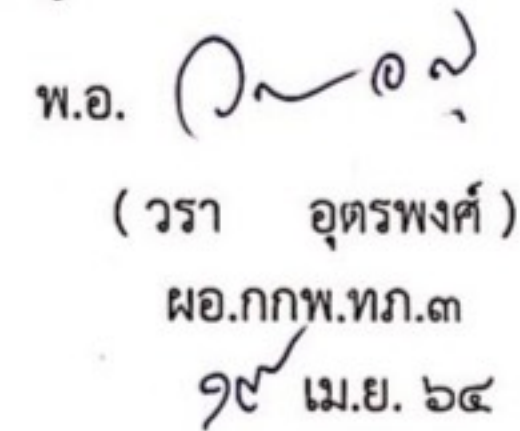 พ.อ.
( วรา อุตรพงศ์ )
ผอ.กกพ.ทภ.๓
๑๙ เม.ย. ๖๔